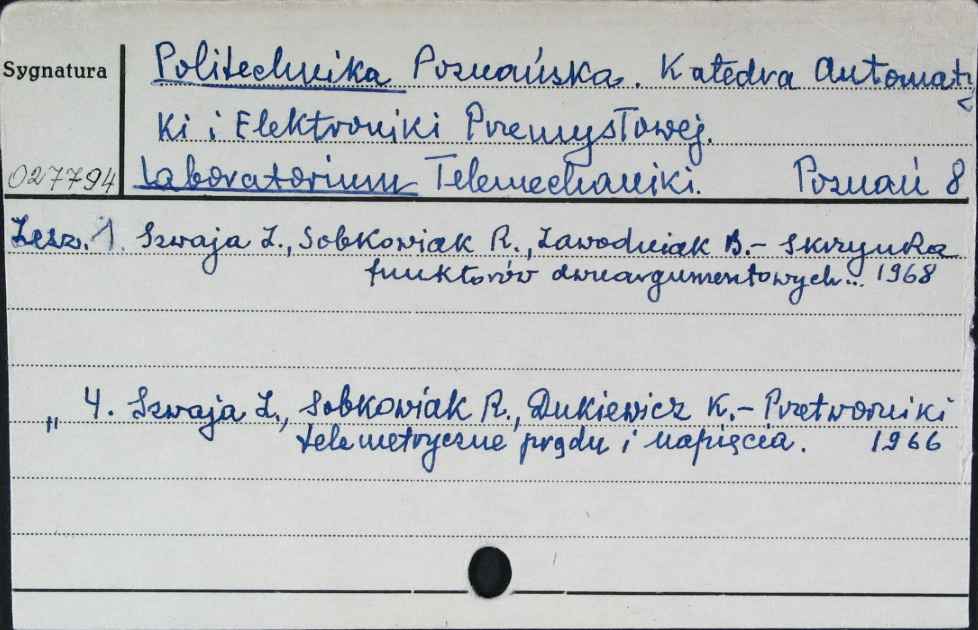 Sygnatura
Politechnika Poznańska. Katedra Automaty
ki i Elektroniki Przemysłowej.
027794
Laboratorium Telemechaniki. Poznań 8
Zesz. 1. Szwaja Z., Sobkowiak R., Zawodniak B.- Skrzynka
funktorów dwuargumentowych... 1968
„ 4. Szwaja Z., Sobkowiak R., Dukiewicz K.- Przetworniki
telemetryczne prądu i napięcia. 1966